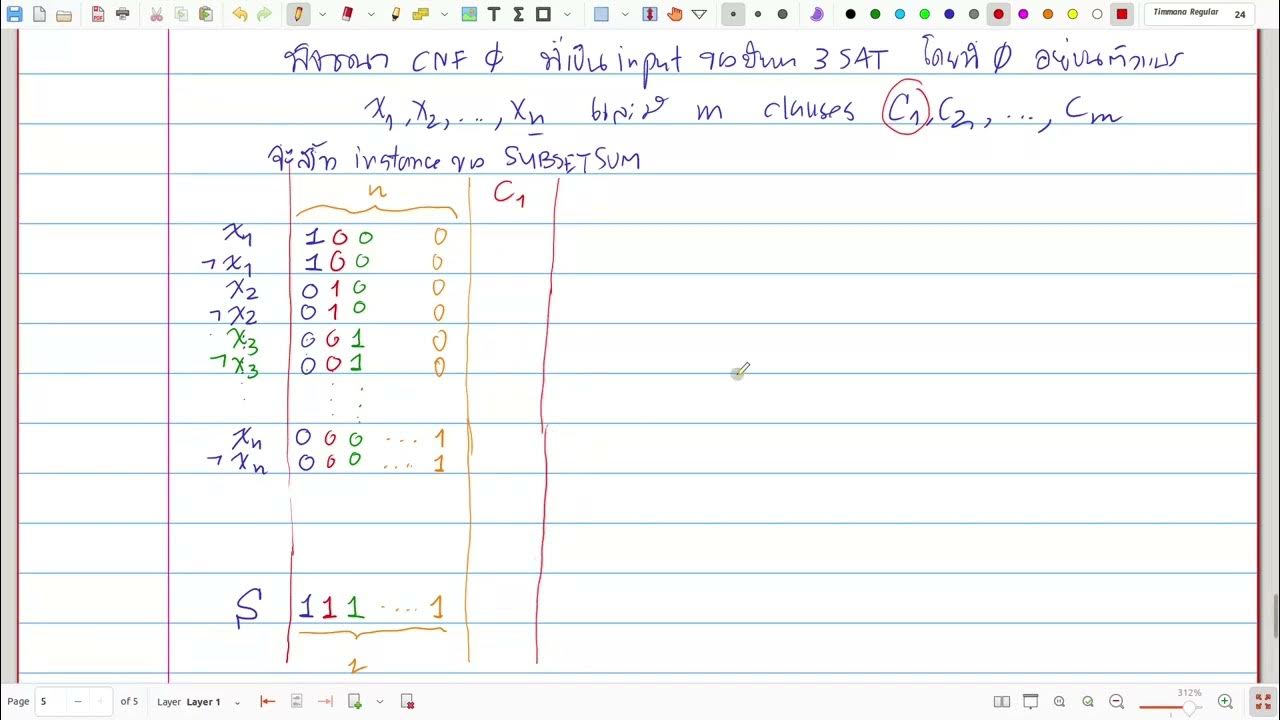 Timmana Regular 24
พิจารณา CNF φ ที่เป็น input ของปัญหา 3SAT โดยที่ φ อยู่บนตัวแปร
x₁, x₂, ..., xₙ และมี m clauses C₁, C₂, ..., Cₘ
จะสร้าง instance ของ SUBSETSUM
n C₁
x₁ 1 0 0 0
¬x₁ 1 0 0 0
x₂ 0 1 0 0
¬x₂ 0 1 0 0
x₃ 0 0 1 0
¬x₃ 0 0 1 0
xₙ 0 0 0 .... 1
¬xₙ 0 0 0 .... 1
S 1 1 1 ..... 1
Page 5 of 5 Layer Layer 1 312%